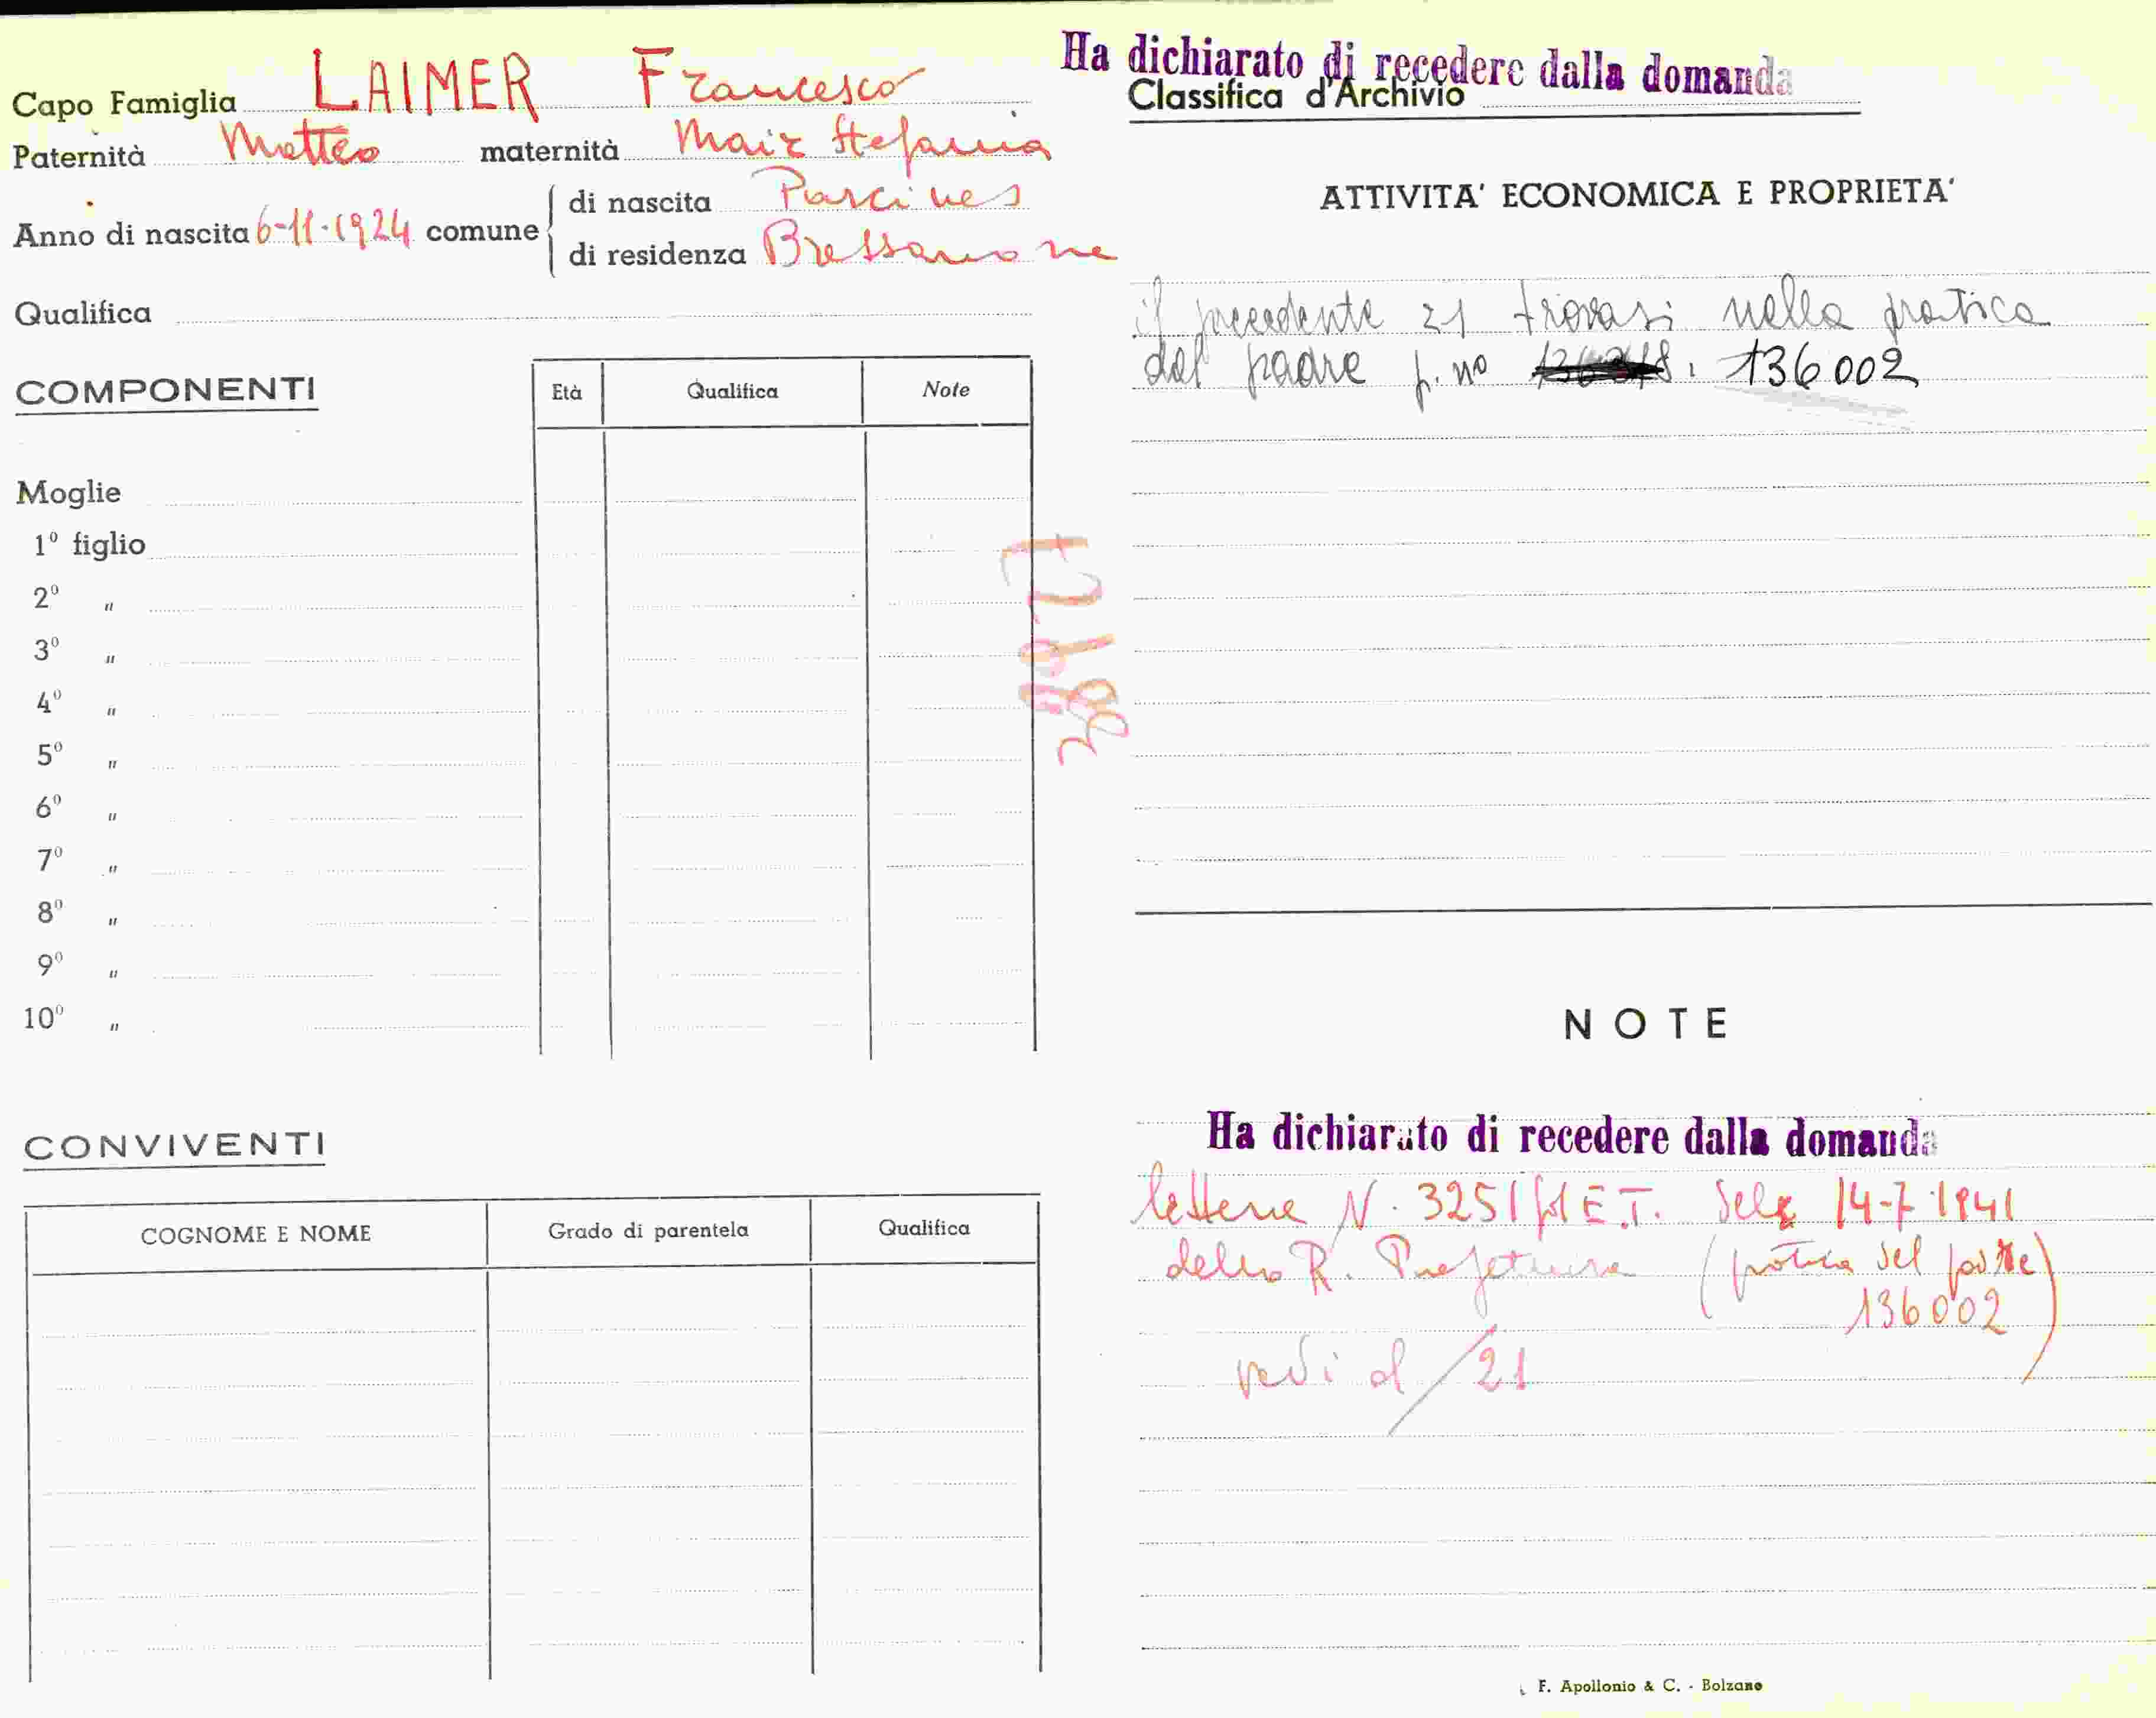 Capo Famiglia LAIMER Francesco
Paternità Matteo maternità Mair Stefania
Anno di nascita 6-11-1924 comune
di nascita Parcines
di residenza Bressanone
Qualifica
COMPONENTI
Età Qualifica Note
Moglie
1º figlio
2º "
3º "
4º "
5º "
6º "
7º "
8º "
9º "
10º "
CONVIVENTI
COGNOME E NOME Grado di parentela Qualifica
Ha dichiarato di recedere dalla domanda
Classifica d'Archivio
ATTIVITA' ECONOMICA E PROPRIETA'
il precedente 21 trovasi nella pratica
del padre p. no 136002
NOTE
Ha dichiarato di recedere dalla domanda
lettera N. 3251 E.T. 14-7-1941
della R. Prefettura (pratica del padre)
136002
vedi al /21
F. Apollonio & C. - Bolzano